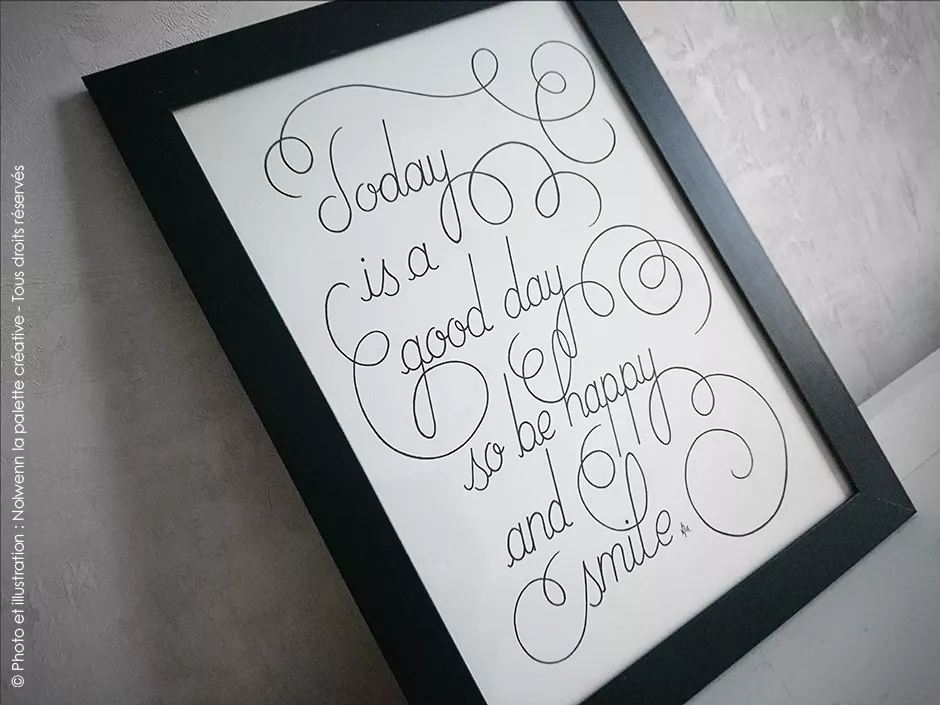 Today
is a
good day
so be happy
and
smile
© Photo et illustration : Nolwenn la palette créative - Tous droits réservés